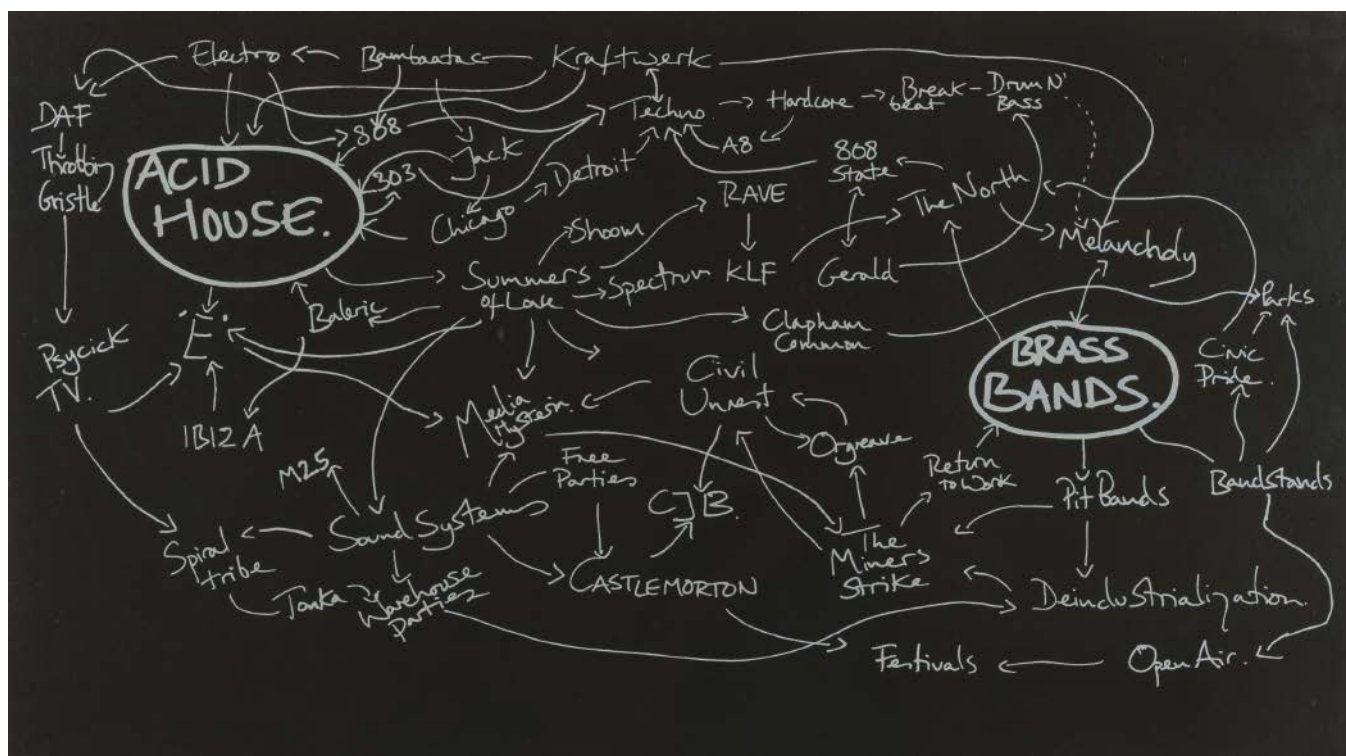 Electro
Bambaataa
Kraftwerk
DAF
Throbbin
Gristle
808
Techno
Hardcore
Break
beat
Drum N'
Bass
ACID
HOUSE.
303
Jack
Detroit
A8
808
State
Chicago
RAVE
The North
Shoom
Melancholy
Summers
of Love
Spectrum
KLF
Gerald
Baleric
Clapham
Common
Parks
Psycick
TV.
.E.
BRASS
BANDS.
Civic
Pride.
IBIZA
Media
Hysteria.
Civil
Unrest
Orgreave
M25
Free
Parties
Return
to Work
Pit Bands
Bandstands
CJB.
Spiral
tribe
Sound Systems
The
Miners
Strike
Tonka
Warehouse
Parties
CASTLEMORTON
Deindustrialization.
Festivals
Open Air.